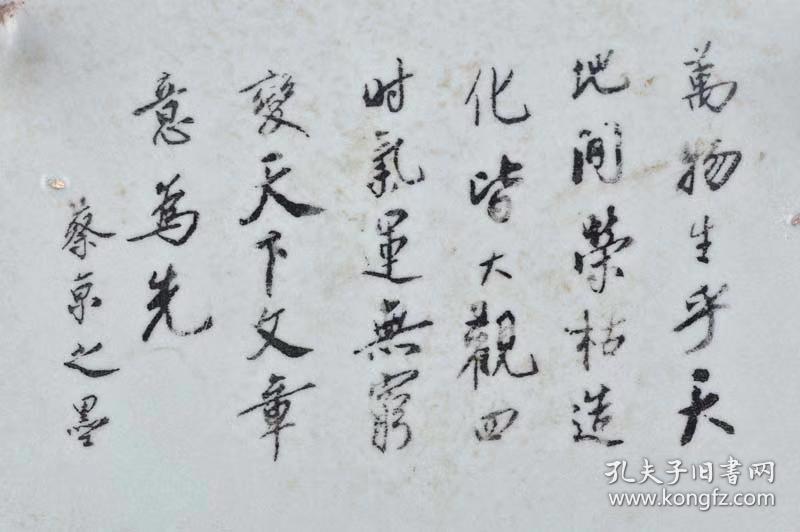 萬物生乎天
地間榮枯造
化皆大觀四
时氣運無窮
變天下文章
意為先
蔡京之墨
孔夫子旧書网
www.kongfz.com